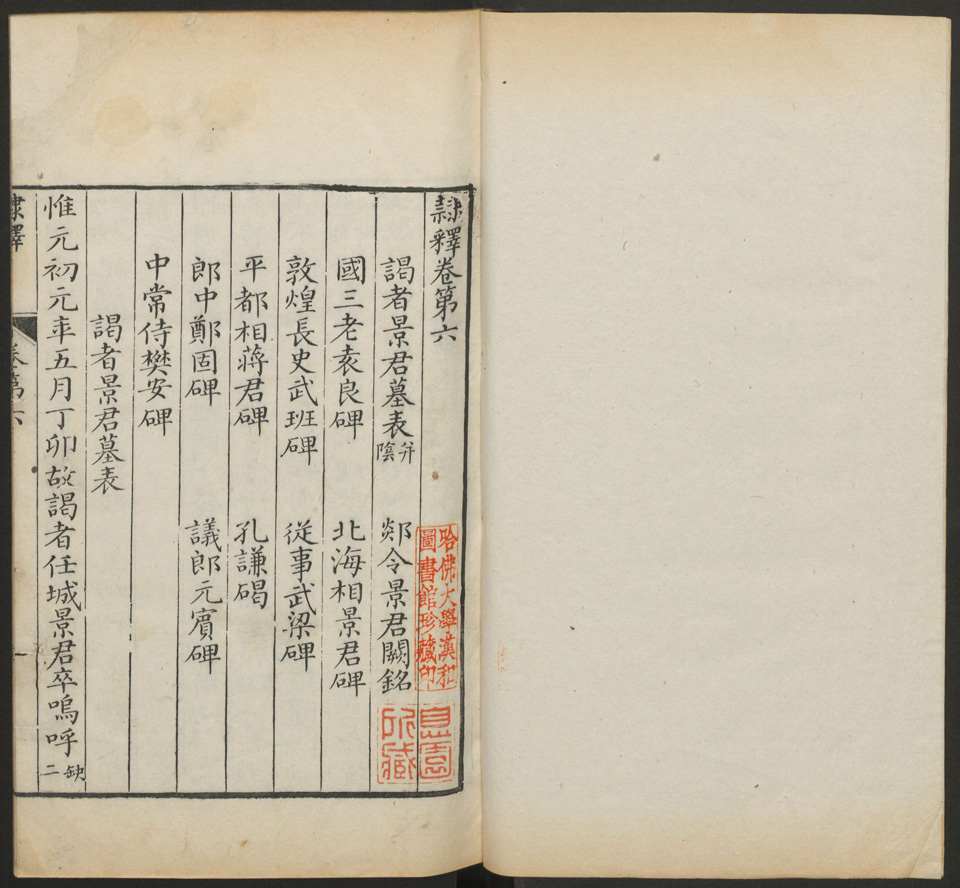 隸釋卷第六
謁者景君墓表并陰 郯令景君闕銘
國三老袁良碑 北海相景君碑
敦煌長史武班碑 從事武梁碑
平都相蔣君碑 孔謙碣
郎中鄭固碑 議郎元賓碑
中常侍樊安碑
謁者景君墓表
惟元初元年五月丁卯故謁者任城景君卒嗚呼缺二
隸釋 卷第六 一
哈佛大學漢和
圖書館珍藏印
息園
所藏